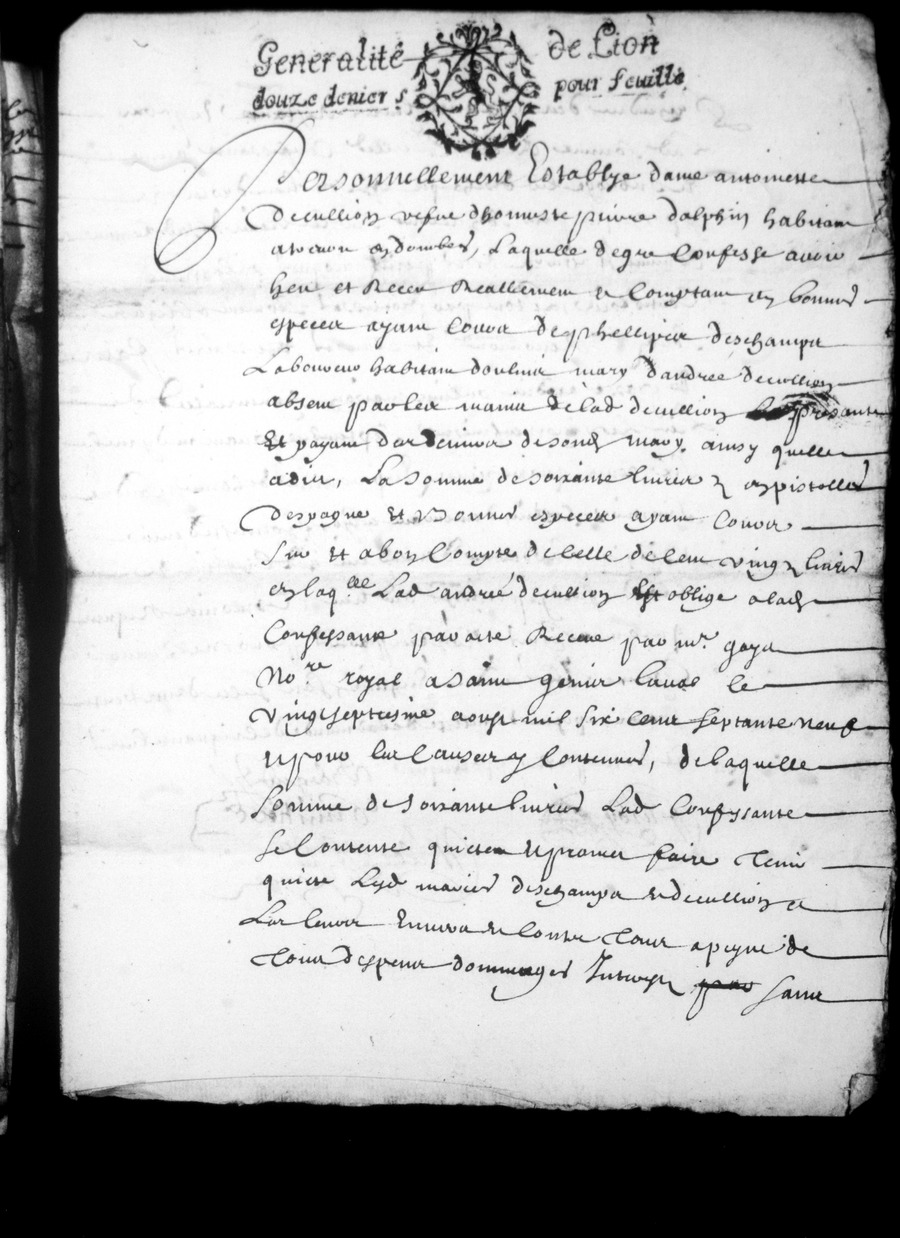 Generalité de Lion
douze deniers pour feuille
Personnellement Establye dame antoinette
decullion vefve dhonneste pierre dalphin habitant
a en dombes, Laquelle de gre Confesse avoir
heu et Receu Reallement et Comptant en bonnes
especes ayant Cours de phellipes deschamps
Laboureur habitant doulnis mary dandree decullion
absent par les mains de lad decullion presante
Et payant des deniers de sond mary ainsy quelle
a dit, La somme de soixante livres en pistolles
despagne et bonnes especes ayant Cours
Sur et a bon Compte de Celle de Cent vingt livres
en laqlle Lad andrée decullion Est obligé a lad
Confessante par acte Receue par mr goyet
Nore royal a saint genier laval le
vingt septiesme aoust mil six Cent septante neuf
et pour les Causes y Contenues, de laquelle
somme de soixante livres Lad Confessante
se Contente quicte et promet faire tenir
quicte Lesd mariés deschamps et decullion et
Les envers et Contre tous a peyne de
tous despens dommages Interestz par sans